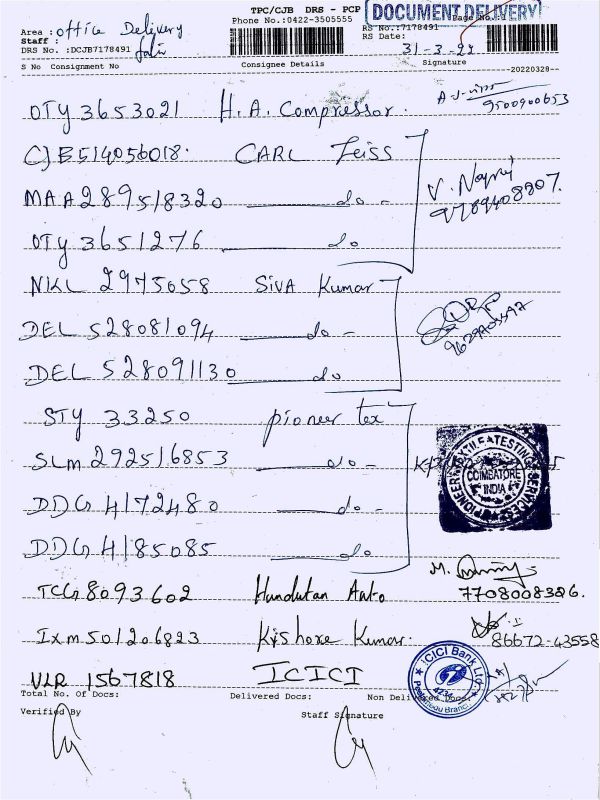 TPC/CJB DRS - PCP
DOCUMENT DELIVERY
Phone No.:0422-3505555
Page No.:
Area : office Delivery
RS No.:7178491
Staff :
RS Date:
DRS No. :DCJB7178491
31-3-22
S No Consignment No Consignee Details Signature
--20220328--
OTY 3653021 H.A. Compressor. 9500900653
CJB514056018. CARL Zeiss
MAA289518320 do - V. Nagraj 9789408907.
OTY 3651276 do
NKL 2975058 SIVA Kumar
DEL 528081094 do -
DEL 528091130 do
STY 33250 pioneer tex
SLM 292516853 do -
PIONEER TEXTILE TESTING SERVICES
COIMBATORE
INDIA
DDG 4172480 do
DDG 4185085 do
TCG 8093602 Hundutan Auto 7708008326.
IXM 501206823 Kishore Kumar. 86672-43558
VLR 1567818 ICICI
ICICI Bank Ltd.
Total No. Of Docs: Delivered Docs: Non Delivered Docs:
Verified By Staff Signature